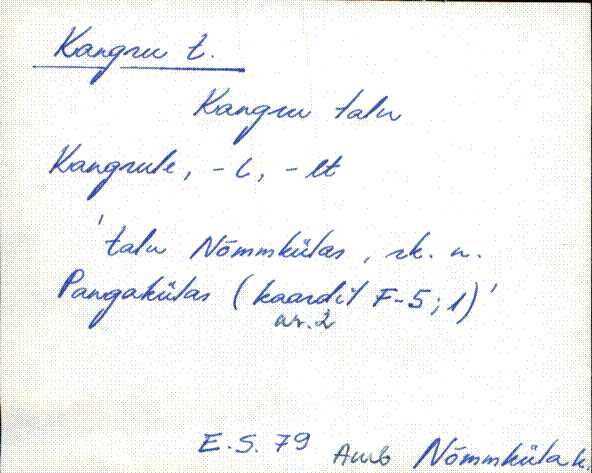 Kangru t.
Kangru talu
Kangrule, -l, -lt
'talu Nõmmkülas, rk. n.
Pangakülas (kaardil F-5; 1)'
nr. 2
E.S. 79 Amb Nõmmküla k.